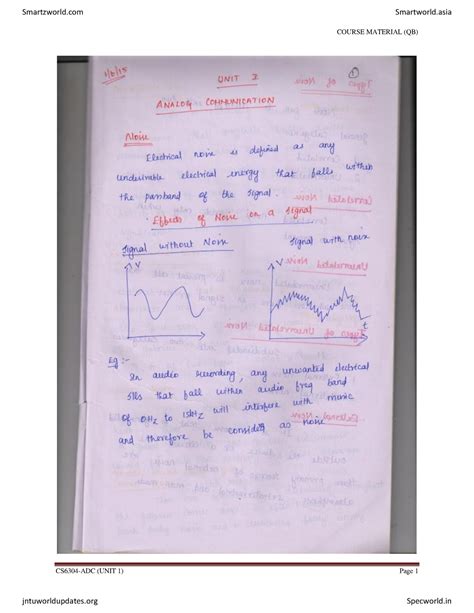 Smartzworld.com Smartworld.asia
COURSE MATERIAL (QB)
1/6/15
①
UNIT I
ANALOG COMMUNICATION
Noise
Electrical noise is defined as any
undesirable electrical energy that falls within
the passband of the signal.
Effects of Noise on a Signal
Signal without Noise Signal with noise
V V
t
Eg :-
In audio recording, any unwanted electrical
slls that fall within audio freq band
of 0Hz to 15kHz will interfere with music
and therefore be considered as noise
CS6304-ADC (UNIT 1) Page 1
jntuworldupdates.org Specworld.in